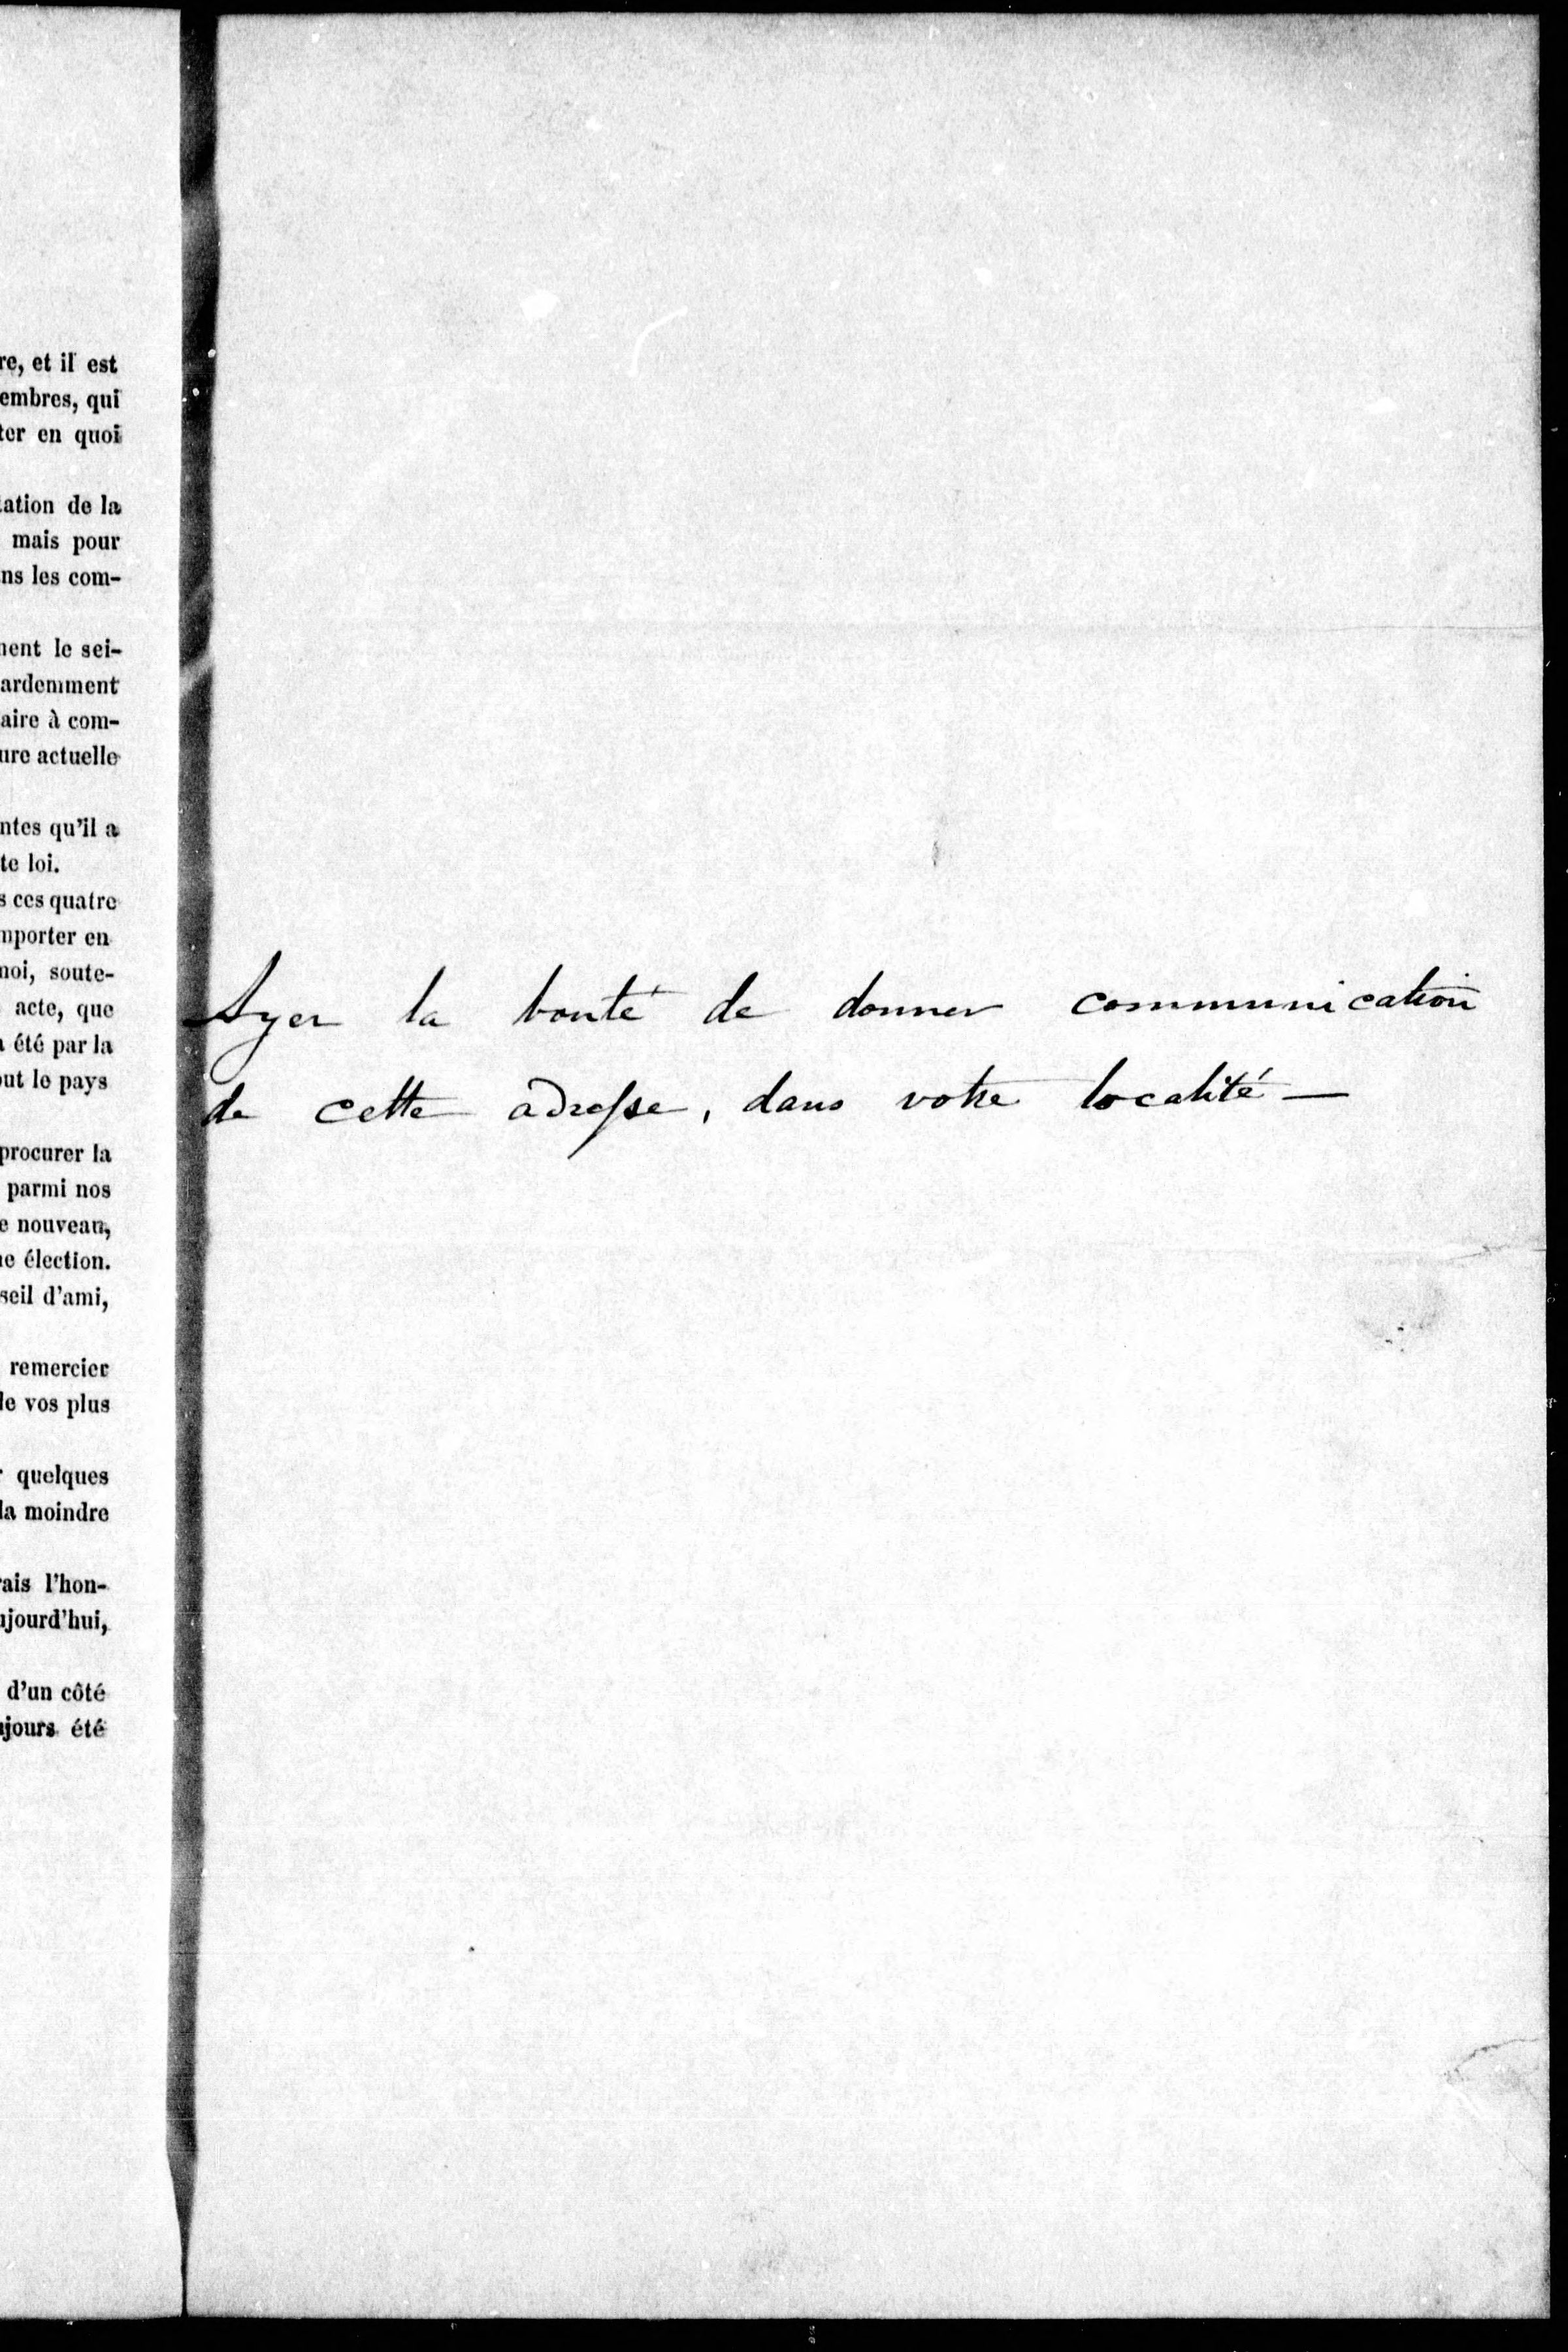 re, et il est
embres, qui
ter en quoi
tation de la
mais pour
ns les com-
nent le sei-
ardemment
aire à com-
ure actuelle
ntes qu'il a
te loi.
s ces quatre
mporter en
moi, soute-
acte, que
a été par la
out le pays
procurer la
parmi nos
e nouveau,
ne élection.
seil d'ami,
remercier
de vos plus
r quelques
la moindre
rais l'hon-
ujourd'hui,
d'un côté
ujours été
Ayez la bonté de donner communication
de cette adresse, dans votre localité —